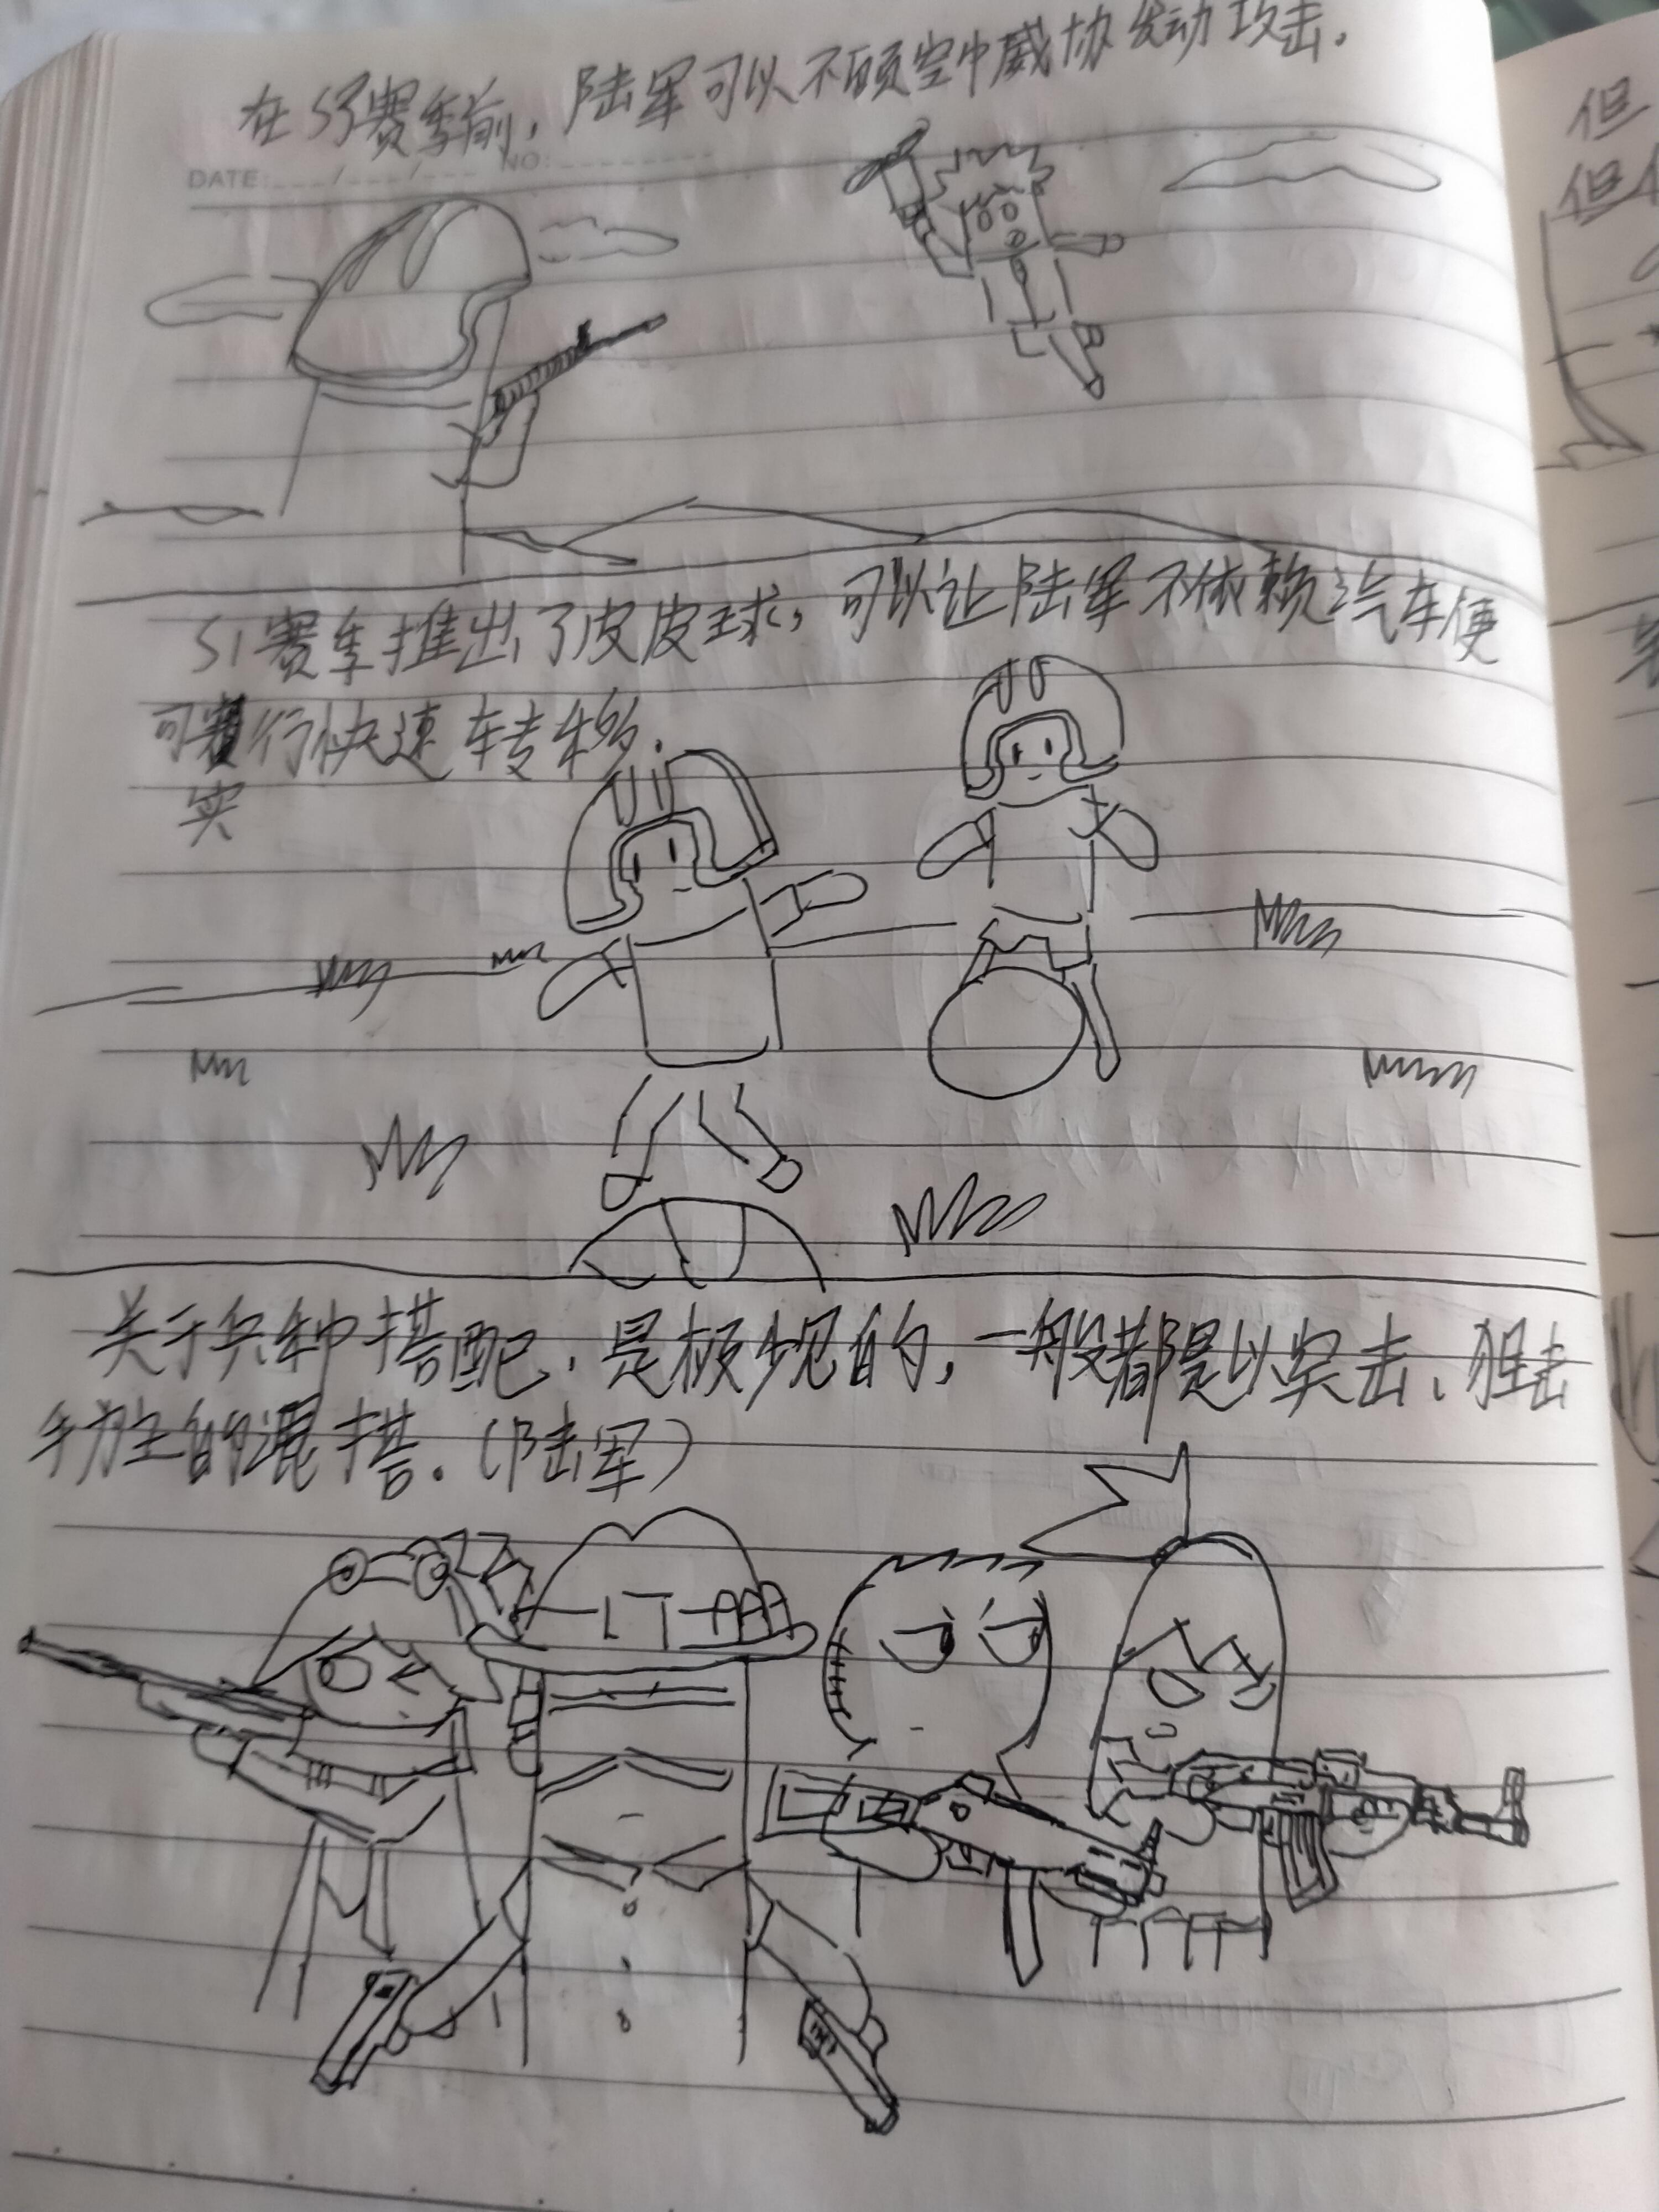 在S3赛季前，陆军可以不顾空中威协发动攻击.
DATE: ___/___/___ NO:________
S1赛季推出了皮皮球，可以让陆军不依赖汽车便
可行快速转移.
实
关于兵种搭配，是极少见的，一般都是以突击、狙击
为主的混搭.（陆军）
但
但